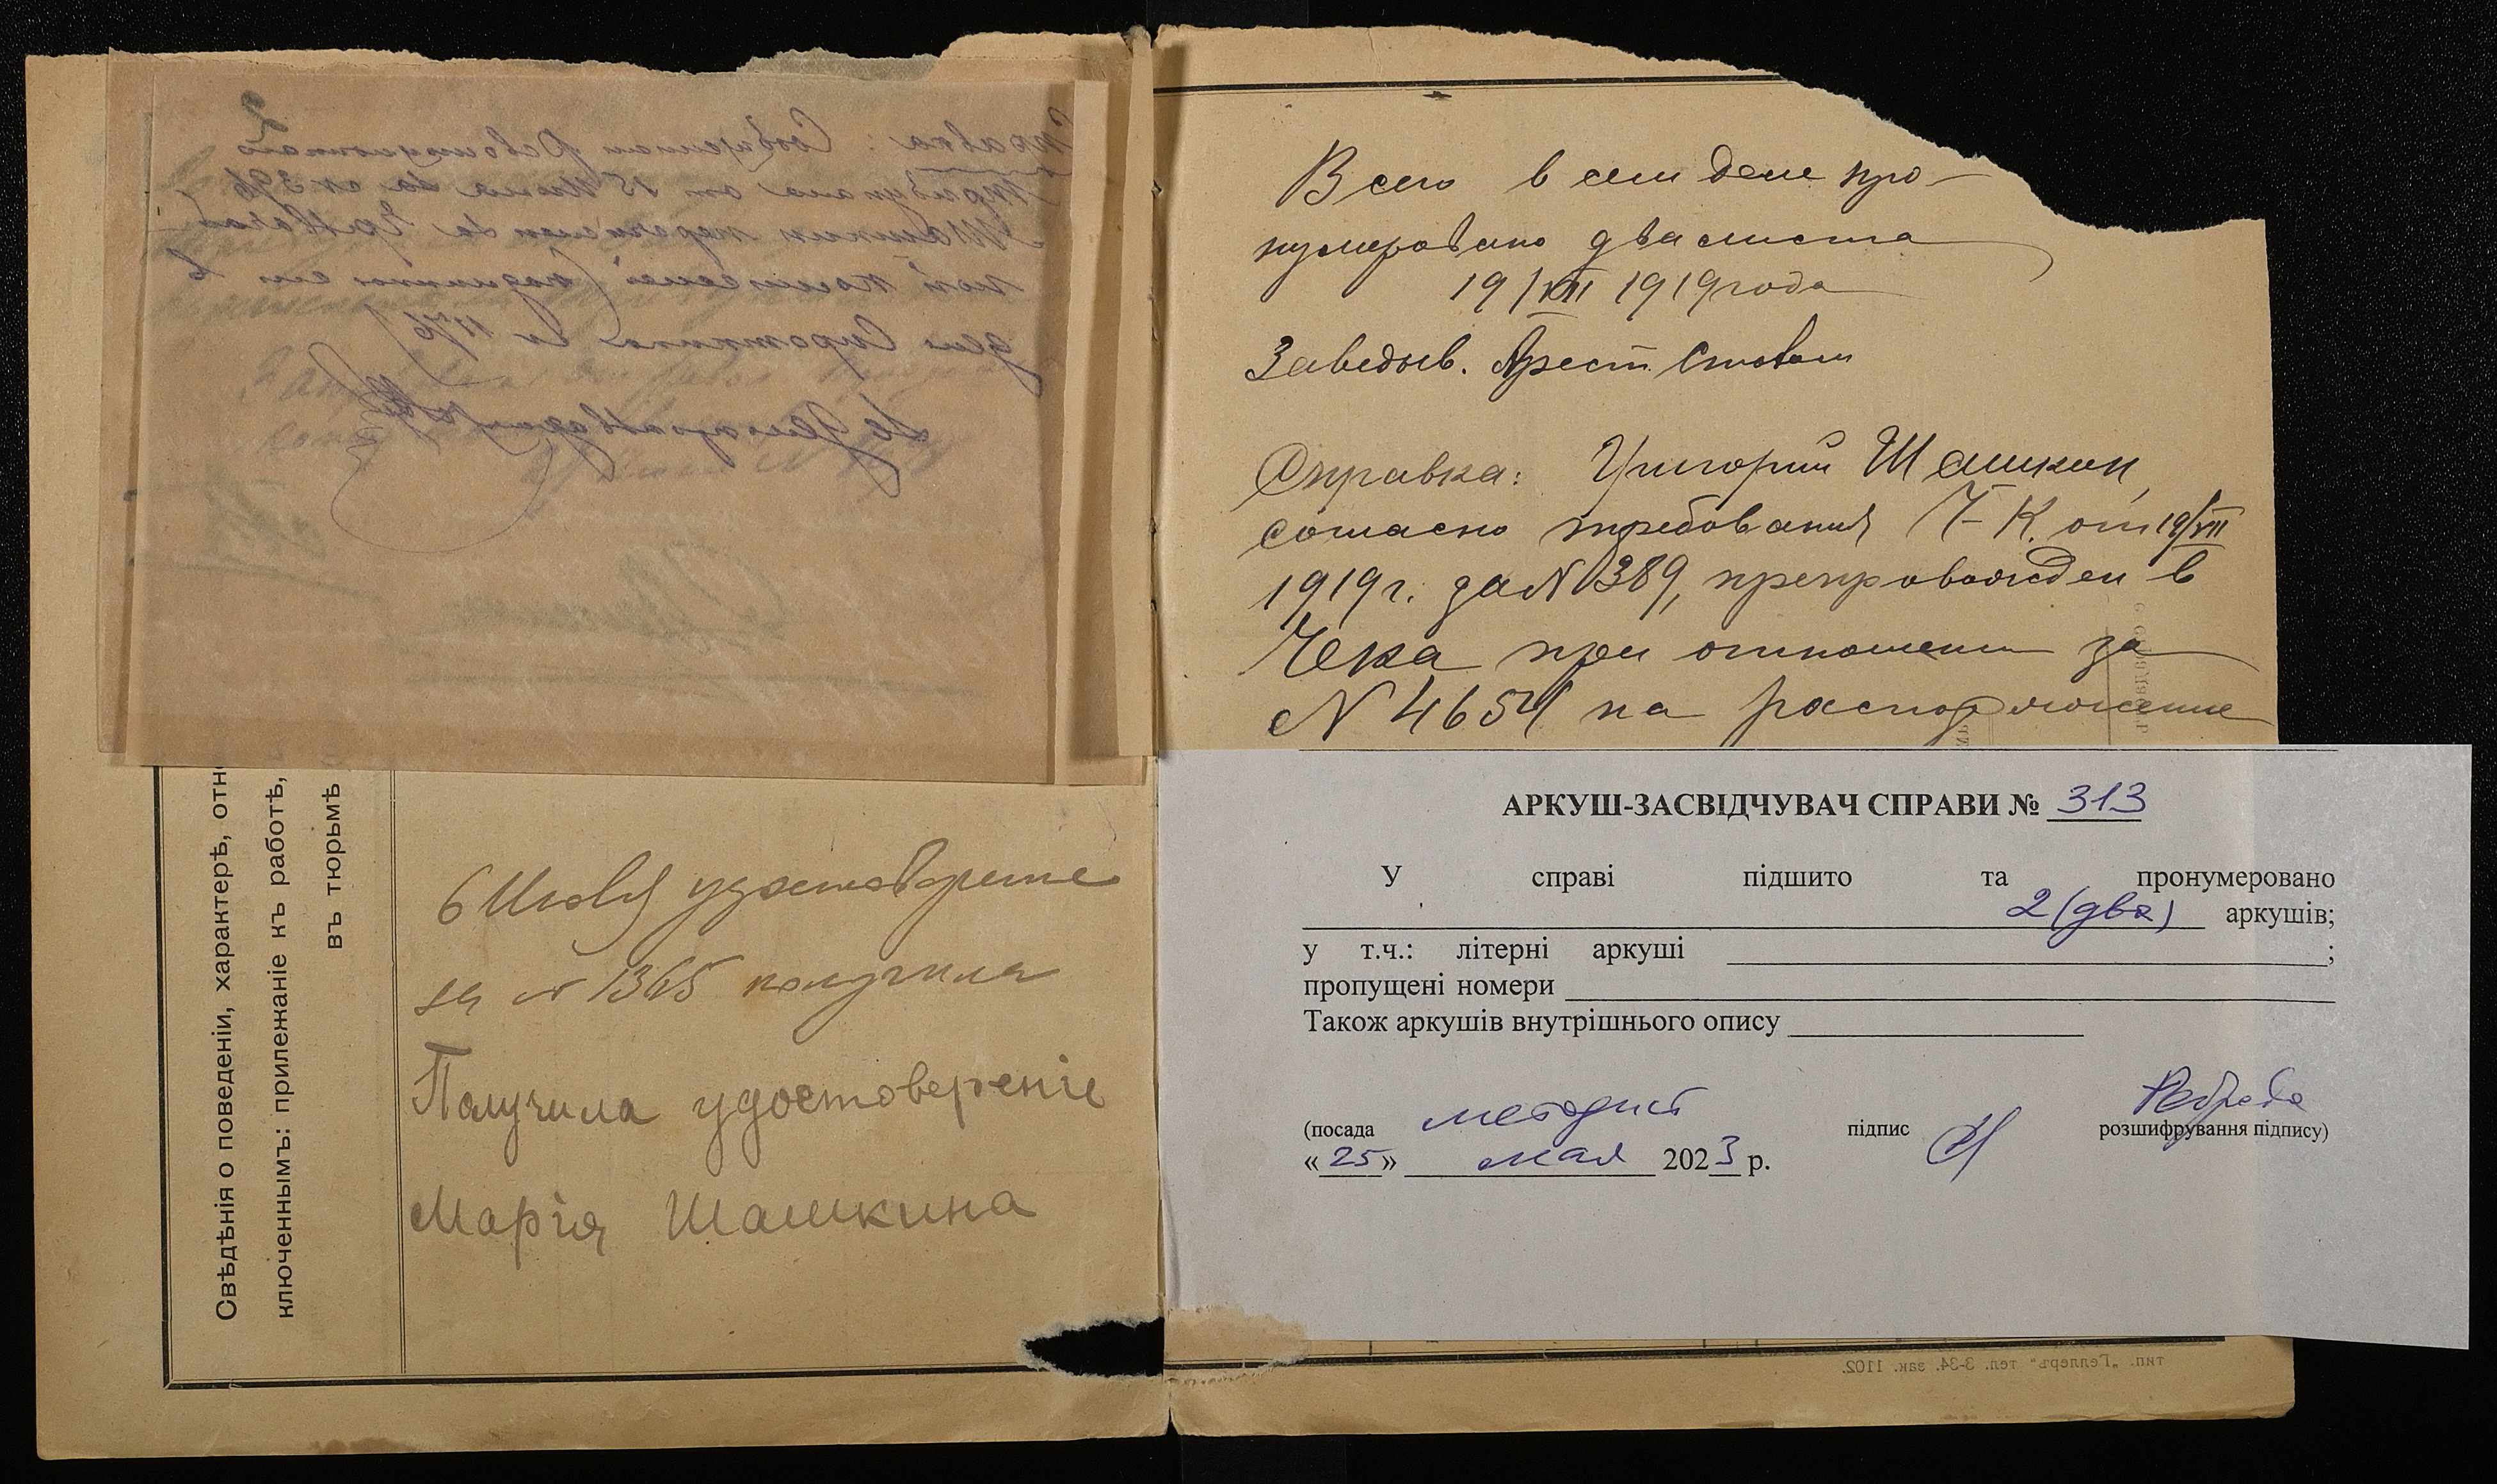 Справка: Сообщением Революционного
трибунала от 15 Июля за № 396
Шашкин перечислен за Чрезвычай
ной комиссией (подлинное в
деле Сироткина № 1176)
Делопроизводит
Свѣдѣнія о поведеніи, характерѣ, отн
ключеннымъ: прилежаніе къ работѣ,
въ тюрьмѣ
6 Июля удостоверение
за № 1365 получила
Получила удостоверенie
Марія Шашкина
Всего в сем деле про-
нумеровано два листа
19/VII 1919 года
Заведыв. Арест. Столом
Справка: Григорий Шашкин,
согласно требования Ч-К. от 19/VII
1919 г. за № 389, препровожден в
Чека при отношении за
№ 4654 на распоряжение
АРКУШ-ЗАСВІДЧУВАЧ СПРАВИ № 313
У справі підшито та пронумеровано
2 (два) аркушів;
у т.ч.: літерні аркуші ;
пропущені номери
Також аркушів внутрішнього опису
(посада методист підпис розшифрування підпису)
«25» мая 2023 р.
тип. „Геллеръ" тел. 3-34. зак. 1102.